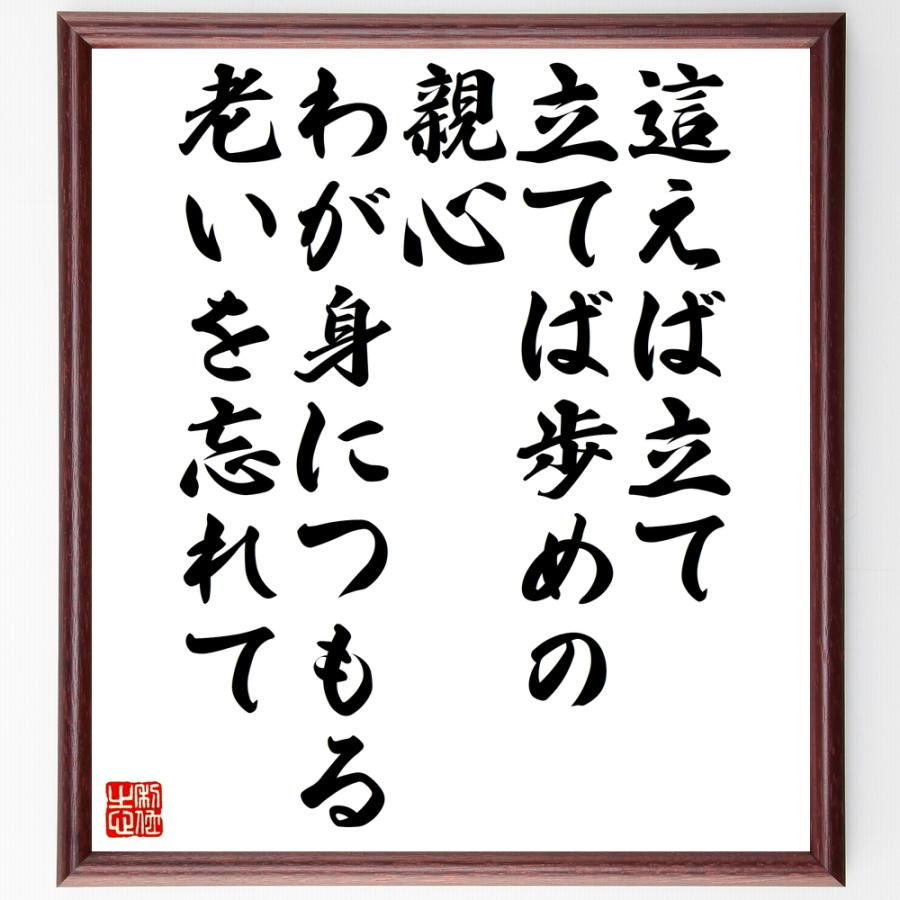 這えば立て
立てば歩めの
親心
わが身につもる
老いを忘れて